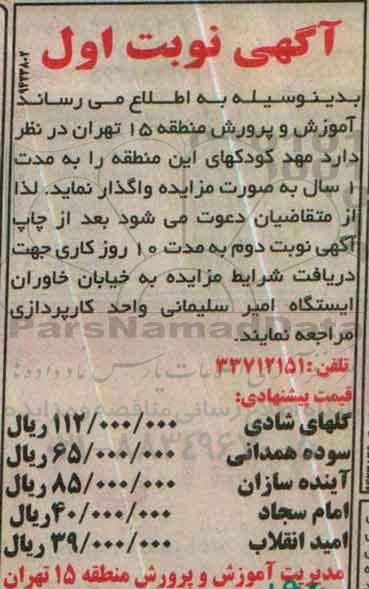 آگهی نوبت اول
۹۴۲۳۸۰۲
بدینوسیله به اطلاع می رساند
آموزش و پرورش منطقه ۱۵ تهران در نظر
دارد مهد کودکهای این منطقه را به مدت
۱ سال به صورت مزایده واگذار نماید. لذا
از متقاضیان دعوت می شود بعد از چاپ
آگهی نوبت دوم به مدت ۱۰ روز کاری جهت
دریافت شرایط مزایده به خیابان خاوران
ایستگاه امیر سلیمانی واحد کارپردازی
مراجعه نمایند.
ParsNamadData
تلفن: ۳۳۷۱۲۱۵۱
قیمت پیشنهادی:
گلهای شادی ۱۱۲/۰۰۰/۰۰۰ ریال
سوده همدانی ۶۵/۰۰۰/۰۰۰ ریال
آینده سازان ۸۵/۰۰۰/۰۰۰ ریال
امام سجاد ۴۰/۰۰۰/۰۰۰ ریال
امید انقلاب ۳۹/۰۰۰/۰۰۰ ریال
مدیریت آموزش و پرورش منطقه ۱۵ تهران